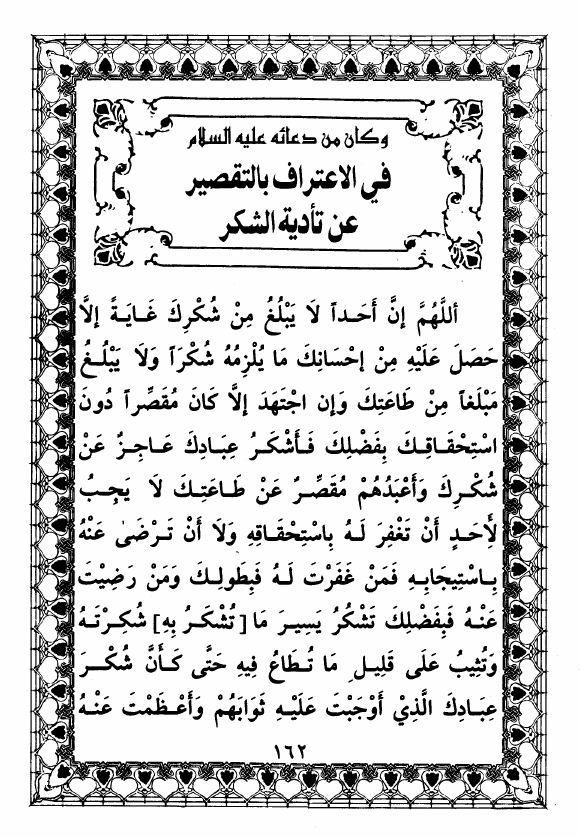 وكان من دعائه عليه السلام
في الاعتراف بالتقصير
عن تأدية الشكر
أللَّهُمَّ إِنَّ أَحَداً لَا يَبْلُغُ مِنْ شُكْرِكَ غَايَةً إلَّا
حَصَلَ عَلَيْهِ مِنْ إحْسَانِكَ مَا يُلْزِمُهُ شُكْرَاً وَلَا يَبْلُغُ
مَبْلَغاً مِنْ طَاعَتِكَ وَإِن اجْتَهَدَ إلَّا كَانَ مُقَصِّراً دُونَ
اسْتِحْقَاقِكَ بِفَضْلِكَ فَأَشْكَرُ عِبَادِكَ عَاجِزٌ عَنْ
شُكْرِكَ وَأَعْبَدُهُمْ مُقَصِّرٌ عَنْ طَاعَتِكَ لَا يَجِبُ
لِأَحَدٍ أَنْ تَغْفِرَ لَهُ بِاسْتِحْقَاقِهِ وَلَا أَنْ تَرْضَىٰ عَنْهُ
بِاسْتِيجَابِهِ فَمَنْ غَفَرْتَ لَهُ فَبِطَولِكَ وَمَنْ رَضِيْتَ
عَنْهُ فَبِفَضْلِكَ تَشْكُرُ يَسِيرَ مَا [تُشْكَرُ بِهِ] شُكِرْتَهُ
وَتُثِيبُ عَلَى قَلِيلِ مَا تُطَاعُ فِيهِ حَتَّى كَأَنَّ شُكْرَ
عِبَادِكَ الَّذِيْ أَوْجَبْتَ عَلَيْهِ ثَوَابَهُمْ وَأَعْظَمْتَ عَنْهُ
١٦٢